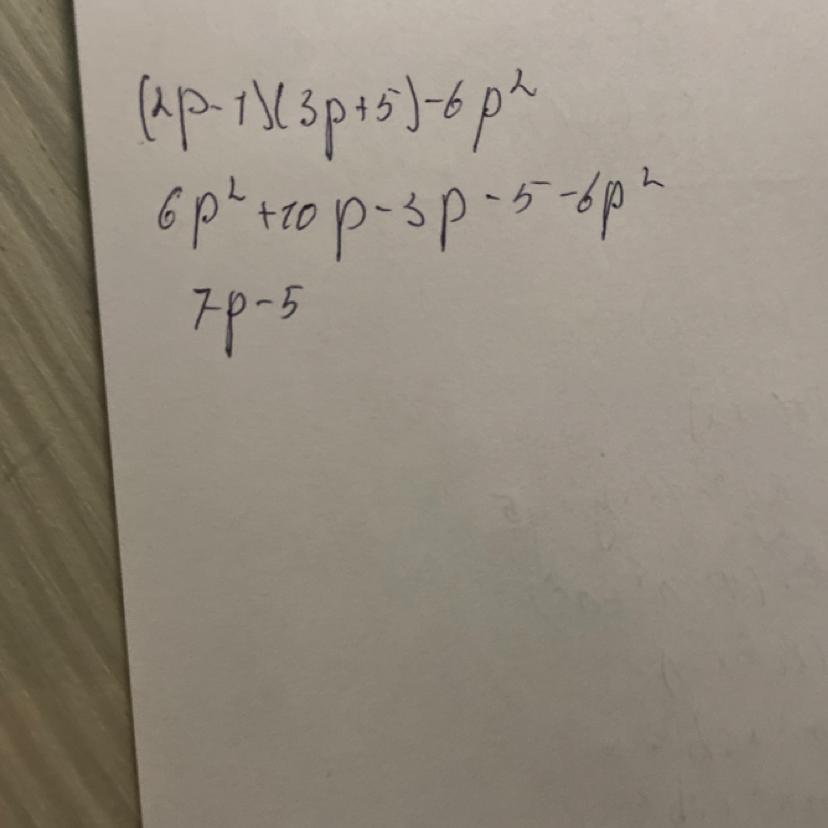 (2p-1)(3p+5)-6p²
6p²+10p-3p-5-6p²
7p-5